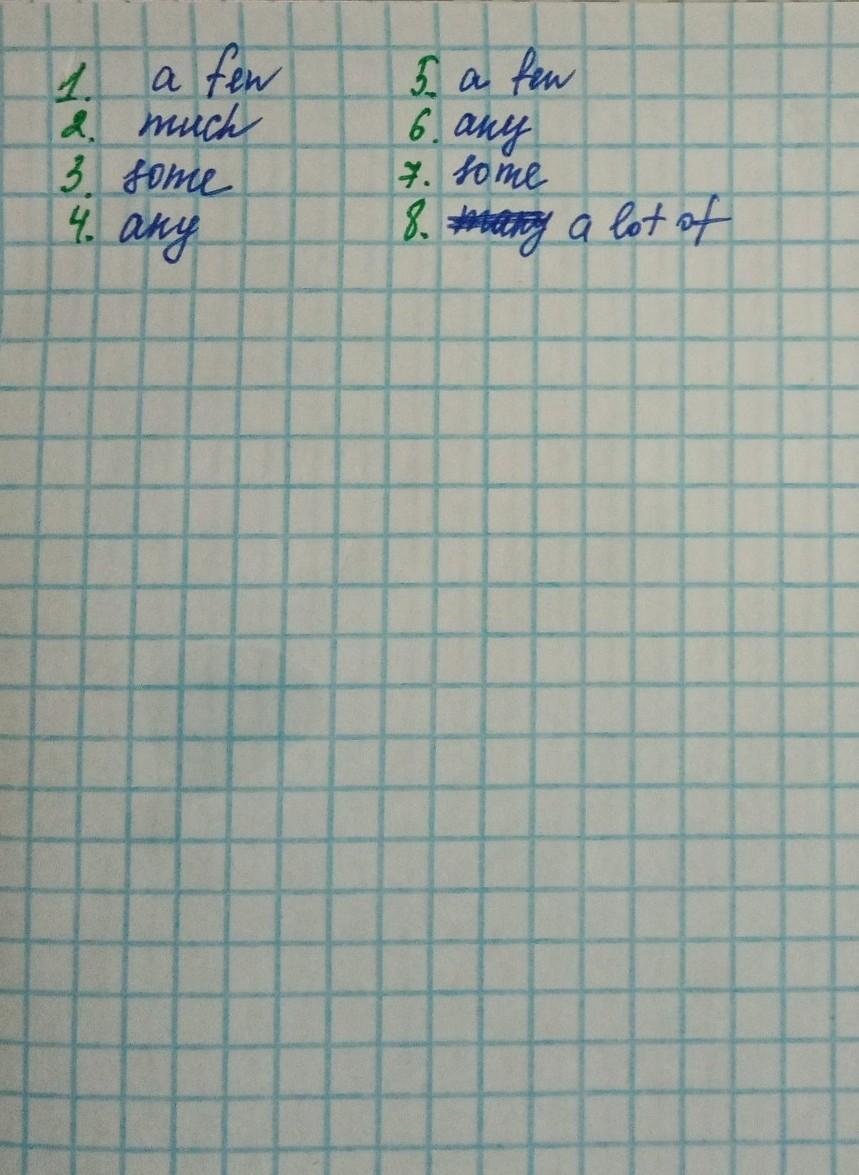 1. a few
2. much
3. some
4. any
5. a few
6. any
7. some
8. many a lot of